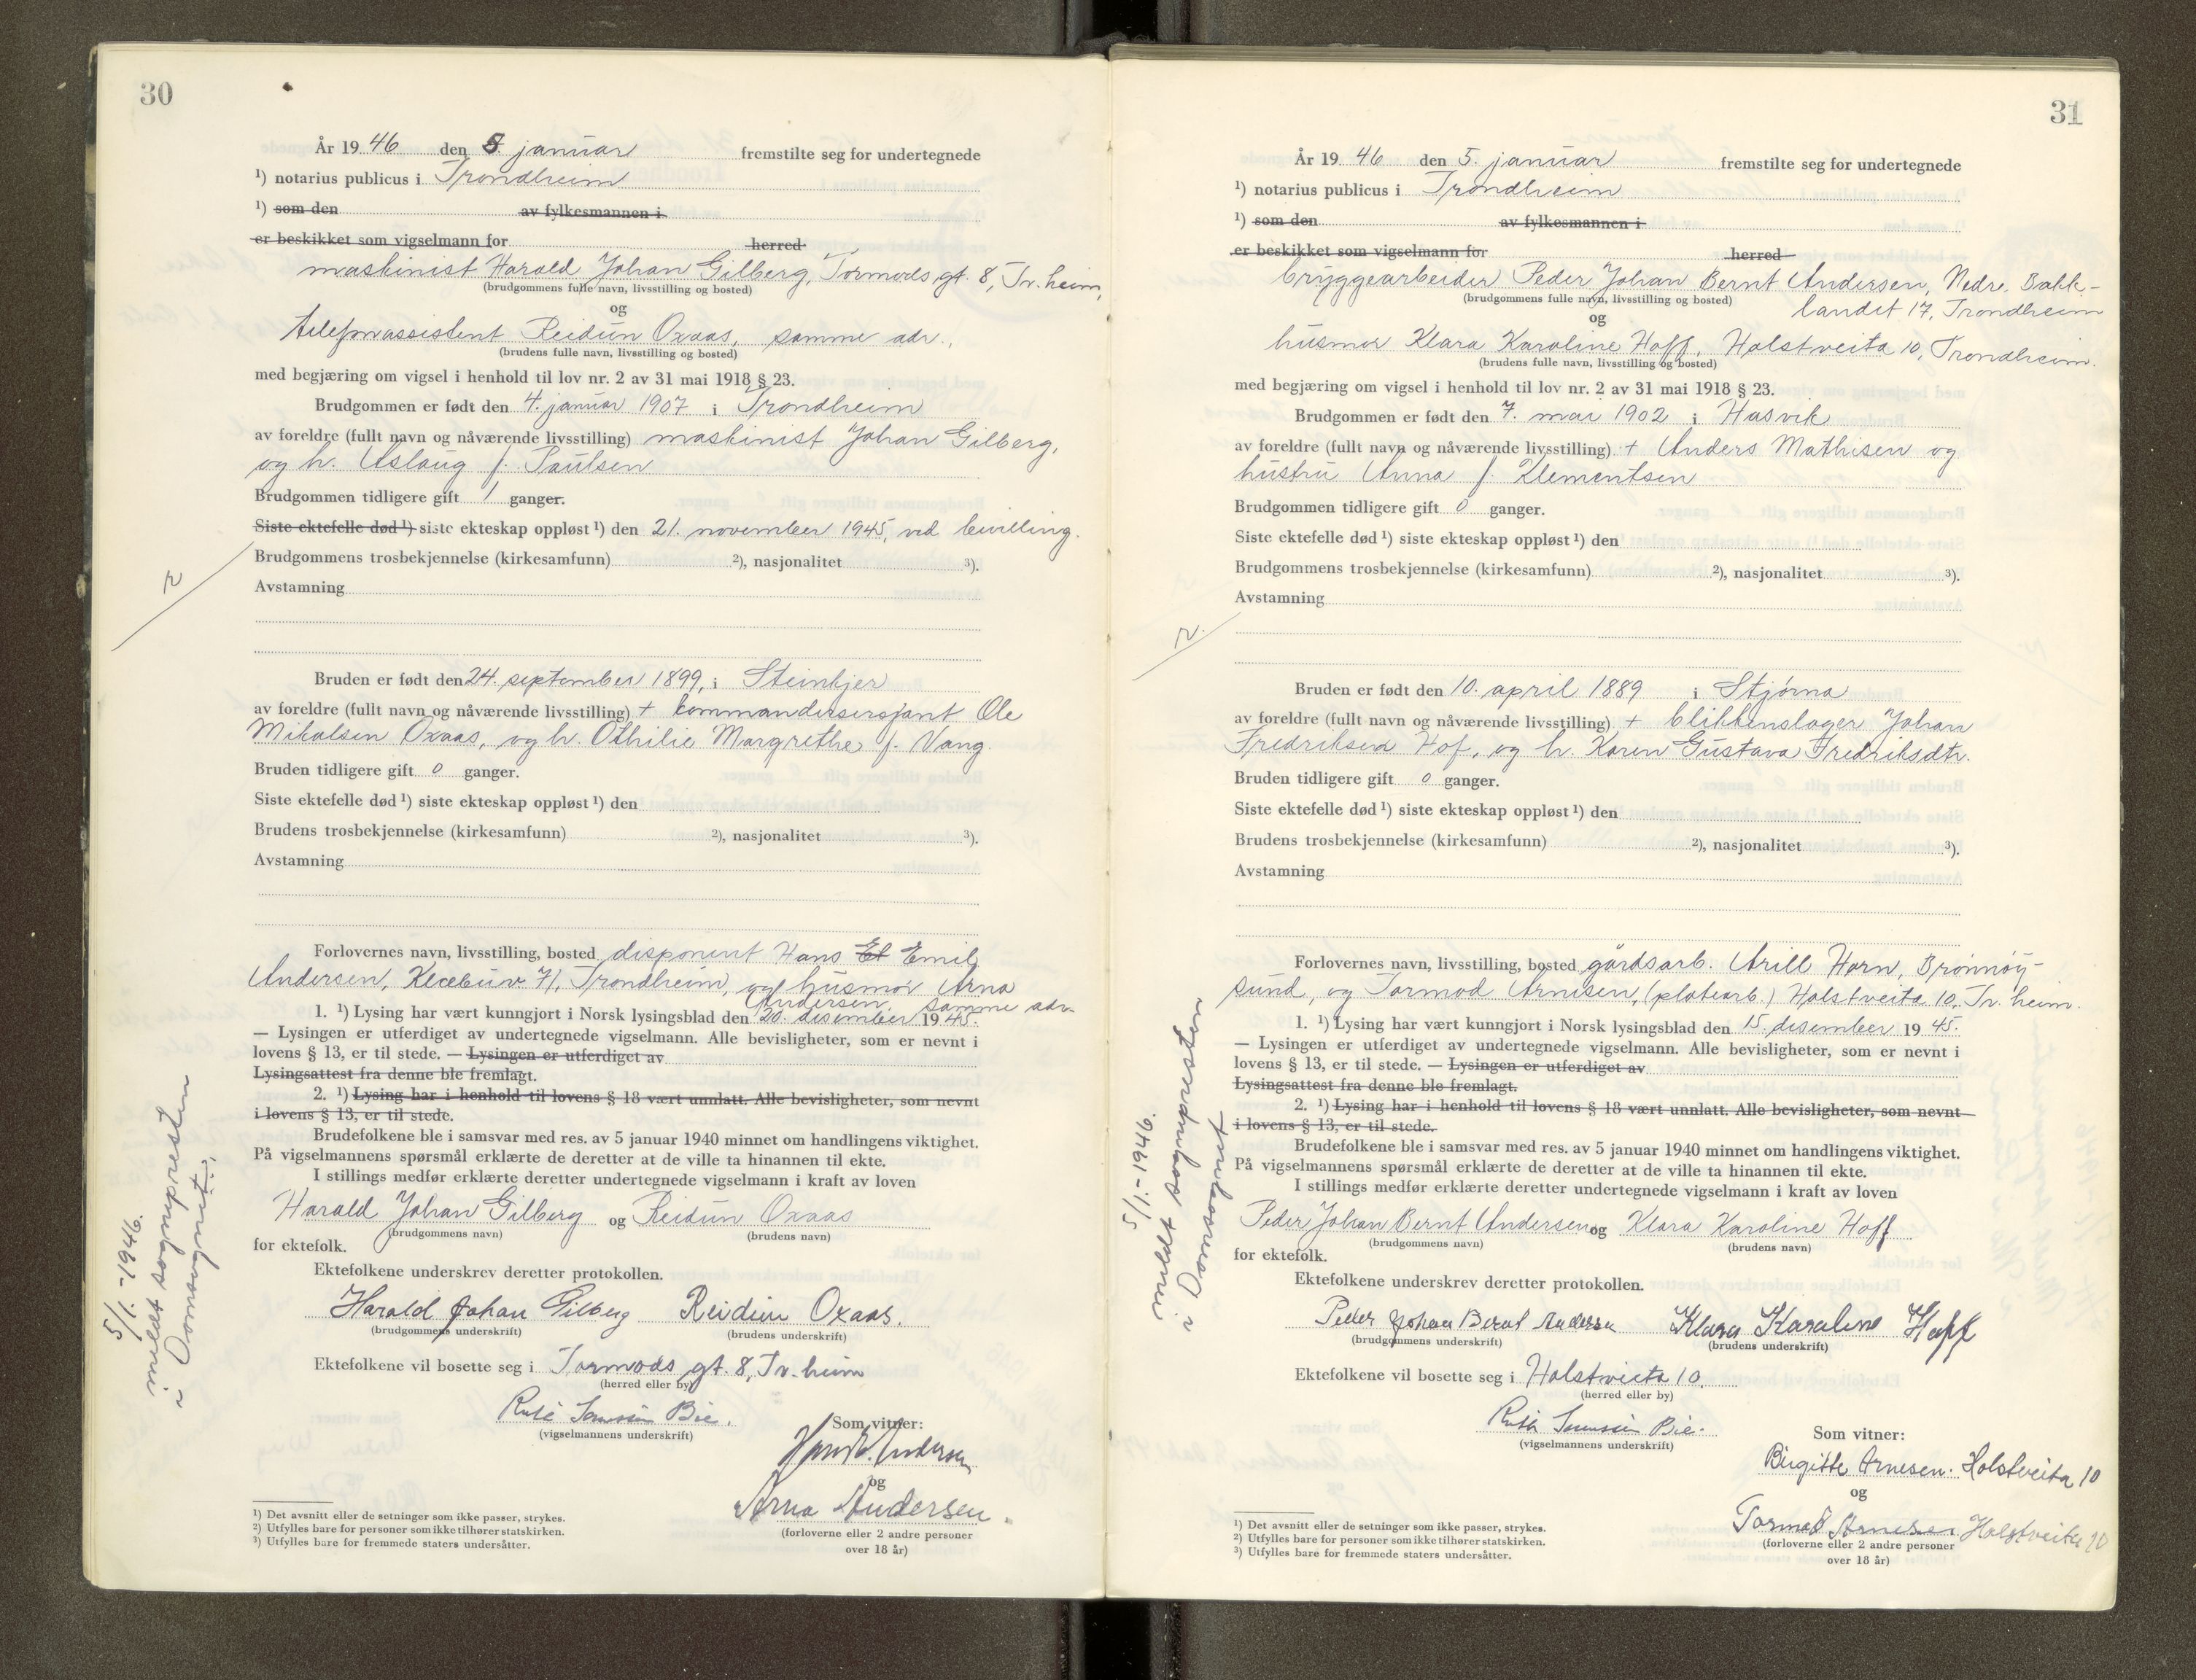 30
År 19 46 den 5. januar fremstilte seg for undertegnede
¹) notarius publicus i Trondheim
¹) som den av fylkesmannen i
er beskikket som vigselmann for herred
maskinist Harald Johan Gilberg, Tormods gt. 8, Tr. heim,
(brudgommens fulle navn, livsstilling og bosted)
og
telefonassistent Reidun Oxaas, samme adr.,
(brudens fulle navn, livsstilling og bosted)
med begjæring om vigsel i henhold til lov nr. 2 av 31 mai 1918 § 23.
Brudgommen er født den 4. januar 1907 i Trondheim
av foreldre (fullt navn og nåværende livsstilling) maskinist Johan Gilberg,
og h. Aslaug f. Paulsen
Brudgommen tidligere gift 1 ganger.
Siste ektefelle død ¹) siste ekteskap oppløst ¹) den 21. november 1945, ved bevilling.
Brudgommens trosbekjennelse (kirkesamfunn) ²), nasjonalitet ³).
Avstamning
Bruden er født den 24. september 1899, i Steinkjer
av foreldre (fullt navn og nåværende livsstilling) + kommandersersjant Ole
Mikalsen Oxaas, og h. Othilie Margrethe f. Vang.
Bruden tidligere gift 0 ganger.
Siste ektefelle død ¹) siste ekteskap oppløst ¹) den
Brudens trosbekjennelse (kirkesamfunn) ²), nasjonalitet ³).
Avstamning
Forlovernes navn, livsstilling, bosted disponent Hans Et Emil
Andersen, Klæbuv. 71, Trondheim, og husmor Arna
Andersen, samme adr.
1. ¹) Lysing har vært kunngjort i Norsk lysingsblad den 20. desember 19 45.
— Lysingen er utferdiget av undertegnede vigselmann. Alle bevisligheter, som er nevnt i
lovens § 13, er til stede. — Lysingen er utferdiget av
Lysingsattest fra denne ble fremlagt.
2. ¹) Lysing har i henhold til lovens § 18 vært unnlatt. Alle bevisligheter, som nevnt
i lovens § 13, er til stede.
Brudefolkene ble i samsvar med res. av 5 januar 1940 minnet om handlingens viktighet.
På vigselmannens spørsmål erklærte de deretter at de ville ta hinannen til ekte.
I stillings medfør erklærte deretter undertegnede vigselmann i kraft av loven
Harald Johan Gilberg og Reidun Oxaas
(brudgommens navn) (brudens navn)
for ektefolk.
Ektefolkene underskrev deretter protokollen.
Harald Johan Gilberg Reidun Oxaas.
(brudgommens underskrift) (brudens underskrift)
Ektefolkene vil bosette seg i Tormods gt. 8, Tr. heim
(herred eller by)
Ruth Bie.
(vigselmannens underskrift)
Som vitner:
Hans E. Andersen
og
Arna Andersen.
(forloverne eller 2 andre personer
over 18 år)
¹) Det avsnitt eller de setninger som ikke passer, strykes.
²) Utfylles bare for personer som ikke tilhører statskirken.
³) Utfylles bare for fremmede staters undersåtter.
5/1.-1946.
innmeldt sognepresten
i Domsognet.
31
År 19 46 den 5. januar fremstilte seg for undertegnede
¹) notarius publicus i Trondheim
¹) som den av fylkesmannen i
er beskikket som vigselmann for herred
bryggearbeider Peder Johan Bernt Andersen, Nedre Bakk-
landet 17, Trondheim
(brudgommens fulle navn, livsstilling og bosted)
og
husmor Klara Karoline Hoff, Holstveita 10, Trondheim.
(brudens fulle navn, livsstilling og bosted)
med begjæring om vigsel i henhold til lov nr. 2 av 31 mai 1918 § 23.
Brudgommen er født den 7. mai 1902 i Hasvik
av foreldre (fullt navn og nåværende livsstilling) + Anders Mathisen og
hustru Anna f. Klementsen
Brudgommen tidligere gift 0 ganger.
Siste ektefelle død ¹) siste ekteskap oppløst ¹) den
Brudgommens trosbekjennelse (kirkesamfunn) ²), nasjonalitet ³).
Avstamning
Bruden er født den 10. april 1889 i Stjørna
av foreldre (fullt navn og nåværende livsstilling) + blikkenslager Johan
Fredriksen Hof, og h. Karen Gustava Fredriksdtr.
Bruden tidligere gift 0 ganger.
Siste ektefelle død ¹) siste ekteskap oppløst ¹) den
Brudens trosbekjennelse (kirkesamfunn) ²), nasjonalitet ³).
Avstamning
Forlovernes navn, livsstilling, bosted gårdsarb. Arill Horn, Brønnøy-
sund, og Tormod Arnesen, (platearb.) Holstveita 10, Tr. heim.
1. ¹) Lysing har vært kunngjort i Norsk lysingsblad den 15. desember 19 45.
— Lysingen er utferdiget av undertegnede vigselmann. Alle bevisligheter, som er nevnt i
lovens § 13, er til stede. — Lysingen er utferdiget av
Lysingsattest fra denne ble fremlagt.
2. ¹) Lysing har i henhold til lovens § 18 vært unnlatt. Alle bevisligheter, som nevnt
i lovens § 13, er til stede.
Brudefolkene ble i samsvar med res. av 5 januar 1940 minnet om handlingens viktighet.
På vigselmannens spørsmål erklærte de deretter at de ville ta hinannen til ekte.
I stillings medfør erklærte deretter undertegnede vigselmann i kraft av loven
Peder Johan Bernt Andersen og Klara Karoline Hoff
(brudgommens navn) (brudens navn)
for ektefolk.
Ektefolkene underskrev deretter protokollen.
Peder Johan Bernt Andersen Klara Karoline Hoff
(brudgommens underskrift) (brudens underskrift)
Ektefolkene vil bosette seg i Holstveita 10.
(herred eller by)
Ruth Bie.
(vigselmannens underskrift)
Som vitner:
Birgitte Arnesen. Holstveita 10
og
Tormod Arnesen Holstveita 10
(forloverne eller 2 andre personer
over 18 år)
¹) Det avsnitt eller de setninger som ikke passer, strykes.
²) Utfylles bare for personer som ikke tilhører statskirken.
³) Utfylles bare for fremmede staters undersåtter.
5/1-1946.
innmeldt sognepresten
i Domsognet